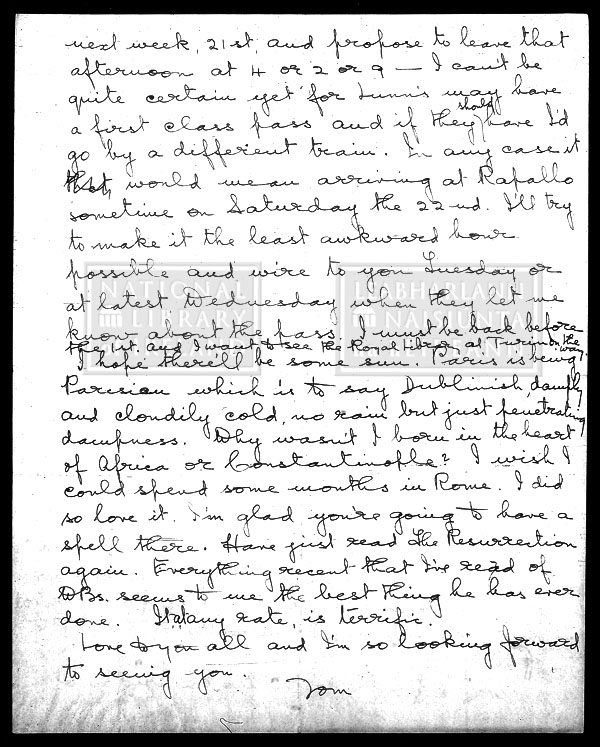 next week, 21st, and propose to leave that
afternoon at 4 or 2 or 9 — I can't be
quite certain yet for Lunn's may have
a first class pass and if they should have I'd
go by a different train. In any case it
would mean arriving at Rapallo
sometime on Saturday the 22nd. I'll try
to make it the least awkward hour
possible and wire to you Tuesday or
at latest Wednesday when they let me
know about the pass. I must be back before
the 1st. and I want to see the Royal Library at Turin on the way.
I hope there'll be some sun. Paris is being
Parisian which is to say Dublinish, damply
and cloudily cold, no rain but just penetrating
dampness. Why wasn't I born in the heart
of Africa or Constantinople? I wish I
could spend some months in Rome. I did
so love it. I'm glad you're going to have a
spell there. Have just read The Resurrection
again. Everything recent that I've read of
WBs. seems to me the best thing he has ever
done. At any rate, is terrific.
Love to you all and I'm so looking forward
to seeing you.
Tom
NATIONAL LIBRARY
LEABHARLANN NÁISIÚNTA